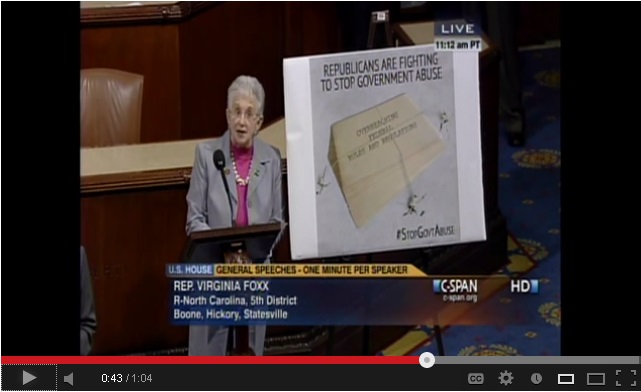 LIVE
11:12 am PT
REPUBLICANS ARE FIGHTING
TO STOP GOVERNMENT ABUSE
OVERBEARING
FEDERAL
RULES AND REGULATIONS
#STOPGOVTABUSE
U.S. HOUSE GENERAL SPEECHES - ONE MINUTE PER SPEAKER
REP. VIRGINIA FOXX
R-North Carolina, 5th District
Boone, Hickory, Statesville
C-SPAN
c-span.org
HD
0:43 / 1:04
CC